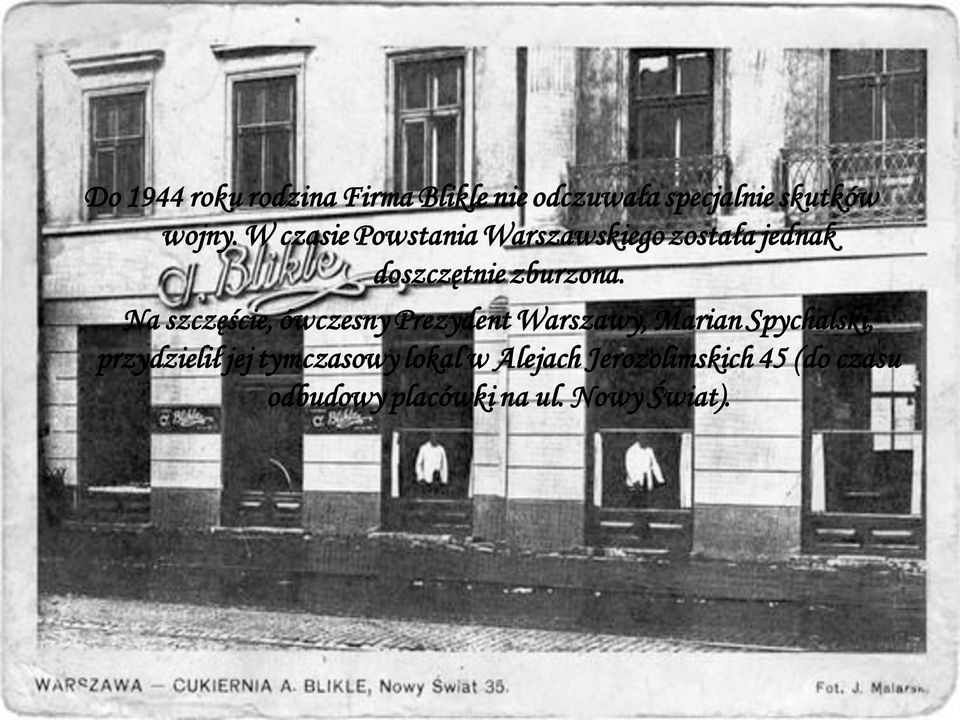 Do 1944 roku rodzina Firma Blikle nie odczuwała specjalnie skutków
wojny. W czasie Powstania Warszawskiego została jednak
doszczętnie zburzona.
A. Blikle
Na szczęście, ówczesny Prezydent Warszawy, Marian Spychalski,
przydzielił jej tymczasowy lokal w Alejach Jerozolimskich 45 (do czasu
odbudowy placówki na ul. Nowy Świat).
A. Blikle
A. Blikle
WARSZAWA — CUKIERNIA A. BLIKLE, Nowy Świat 35.
Fot. J. Malarski